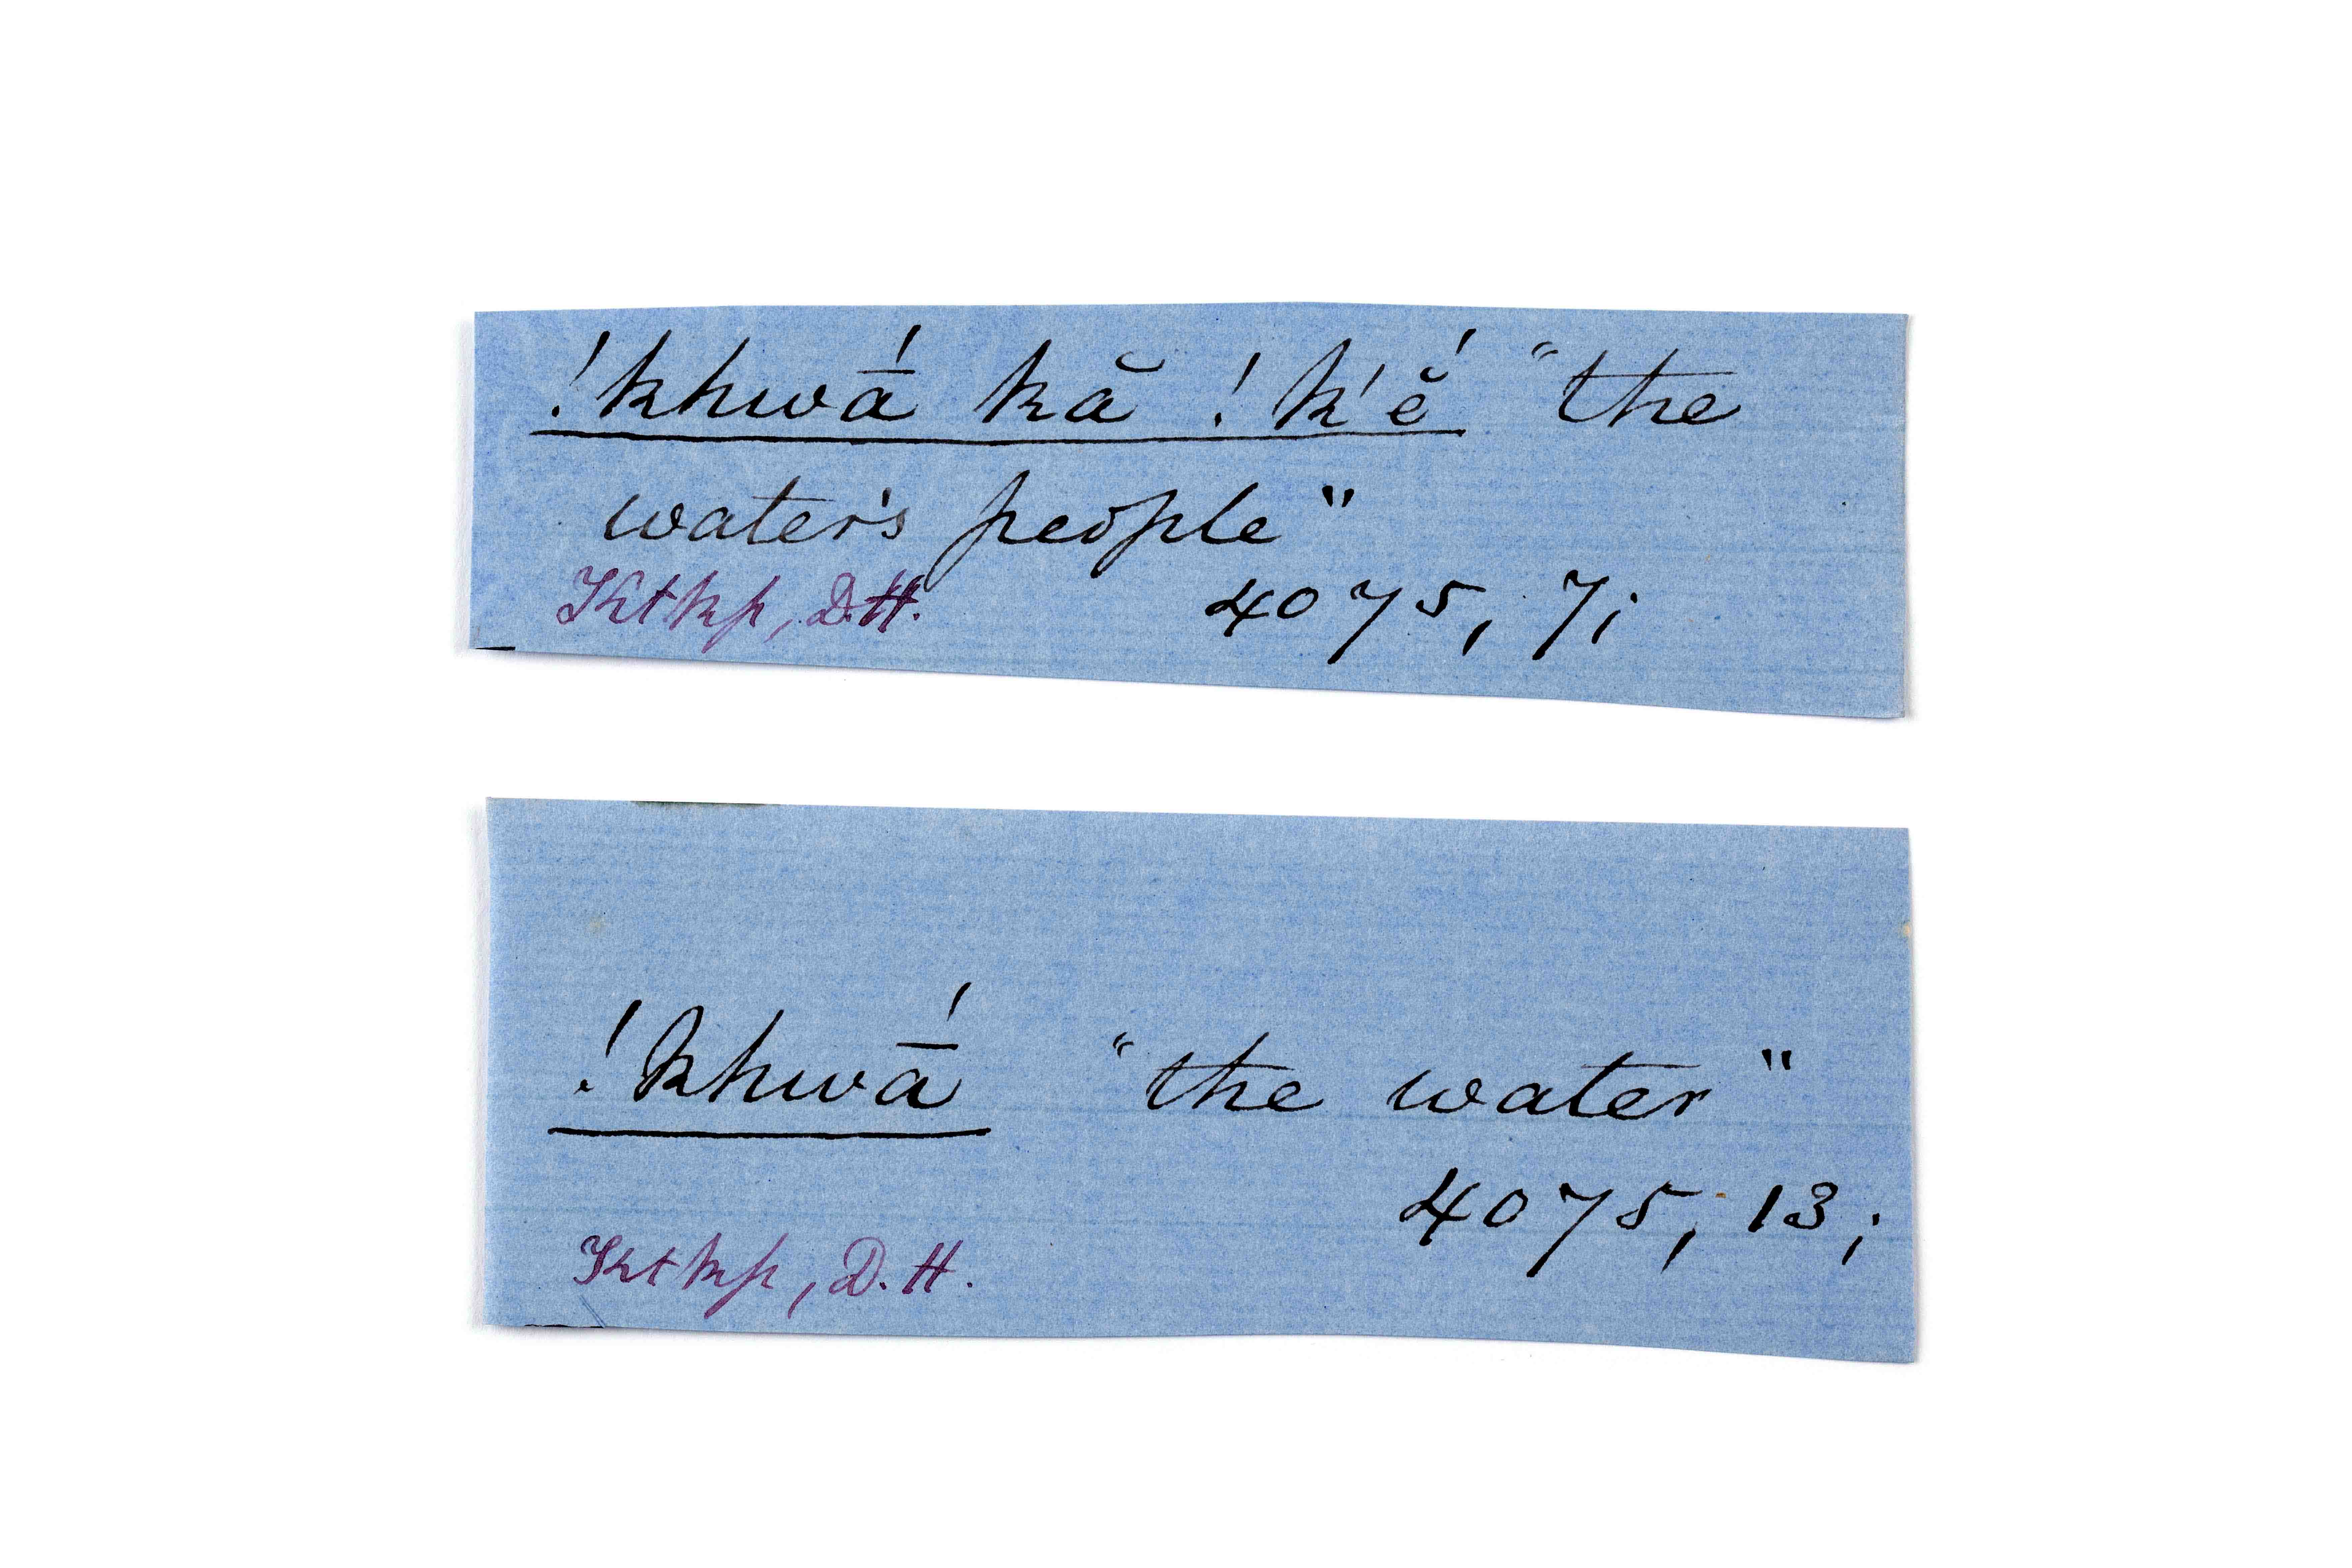 !khwā́ kă !k'ĕ́ "the
water's people"
Ktkp, D.H. 4075, 7;
!khwā́ "the water"
4075, 13;
Ktkp, D.H.